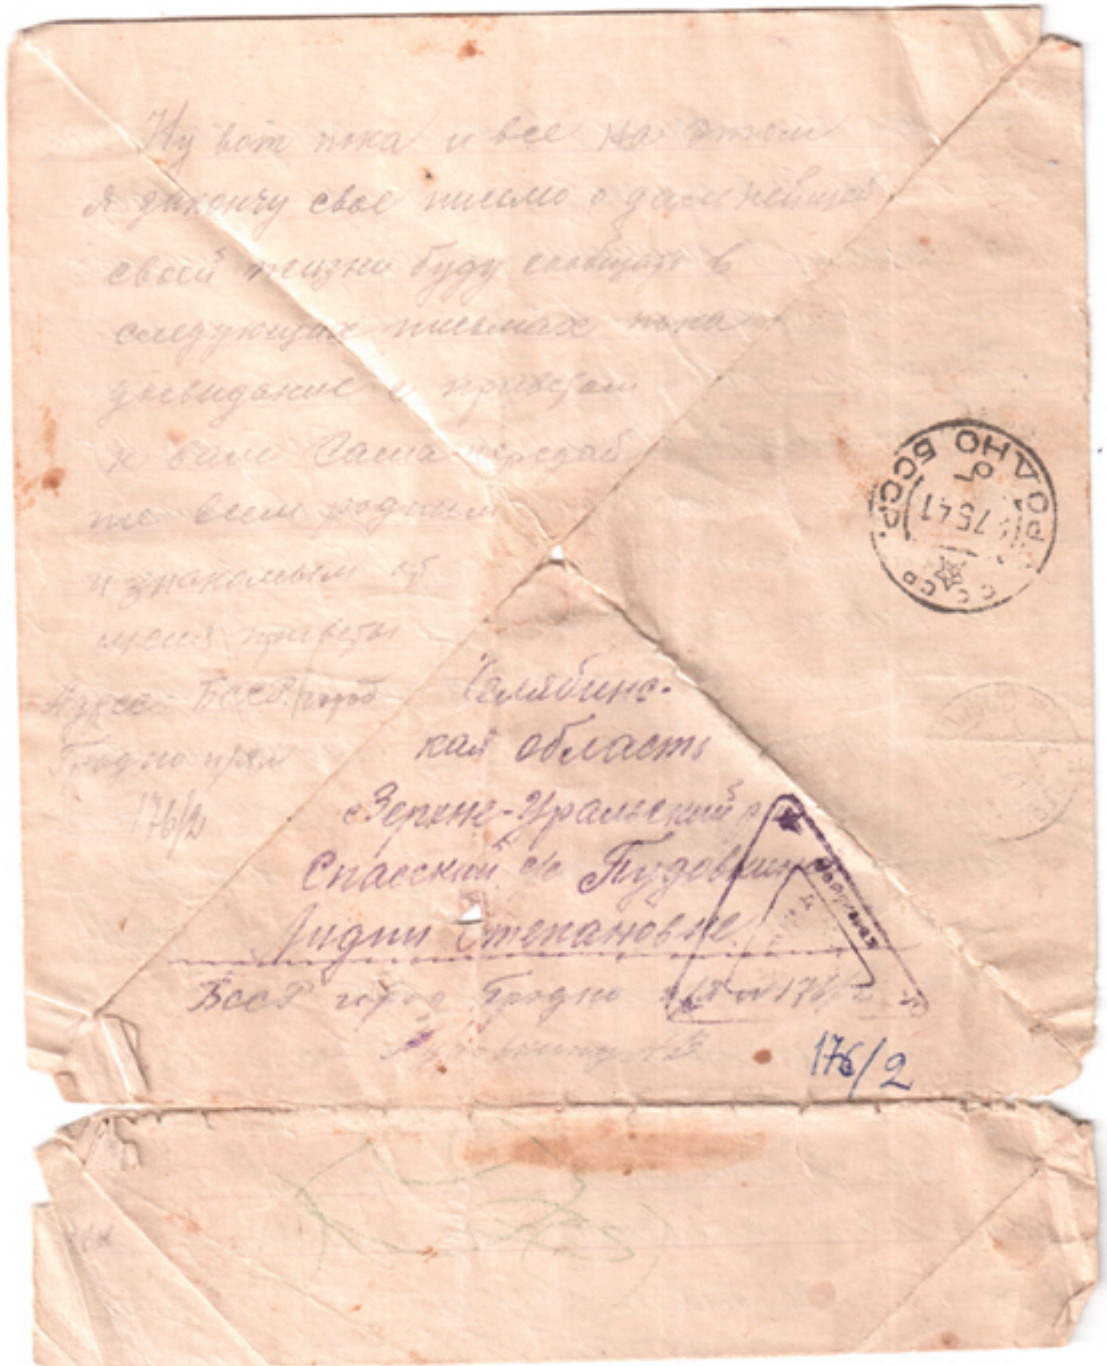 Ну вот пока и все на этом
я закончу свое письмо о дальнейшей
своей жизни буду сообщать в
следующих письмах пока
досвидание с приветом
к вам Саша передай
те всем родным
и знакомым от
меня приветы
Адрес БССР. город
Гродно п/ял
176/2
Челябинс-
кая область
Верхне-Уральский р-н
Спасский с/с Пудовкиной
Лидии Степановне
БССР город Гродно п/я 176/2
176/2
ГРОДНО БССР.
7541
СССР